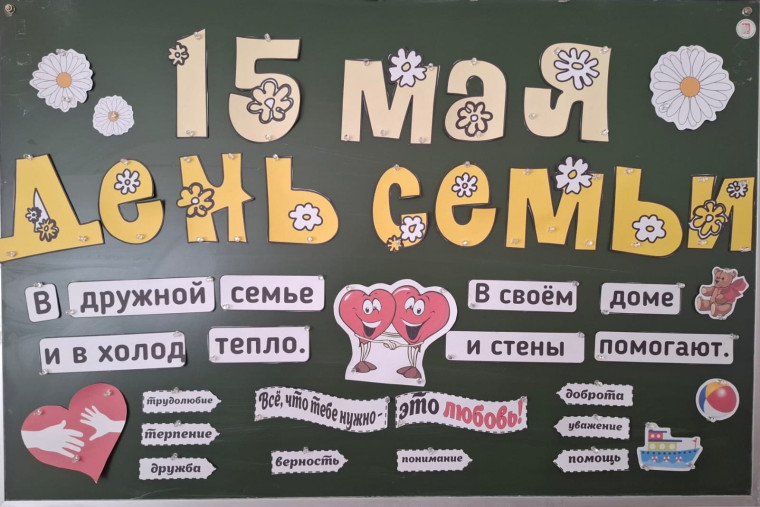 15 мая
День семьи
В дружной семье
и в холод тепло.
В своём доме
и стены помогают.
трудолюбие
терпение
дружба
Всё, что тебе нужно -
это любовь!
верность
понимание
доброта
уважение
помощь